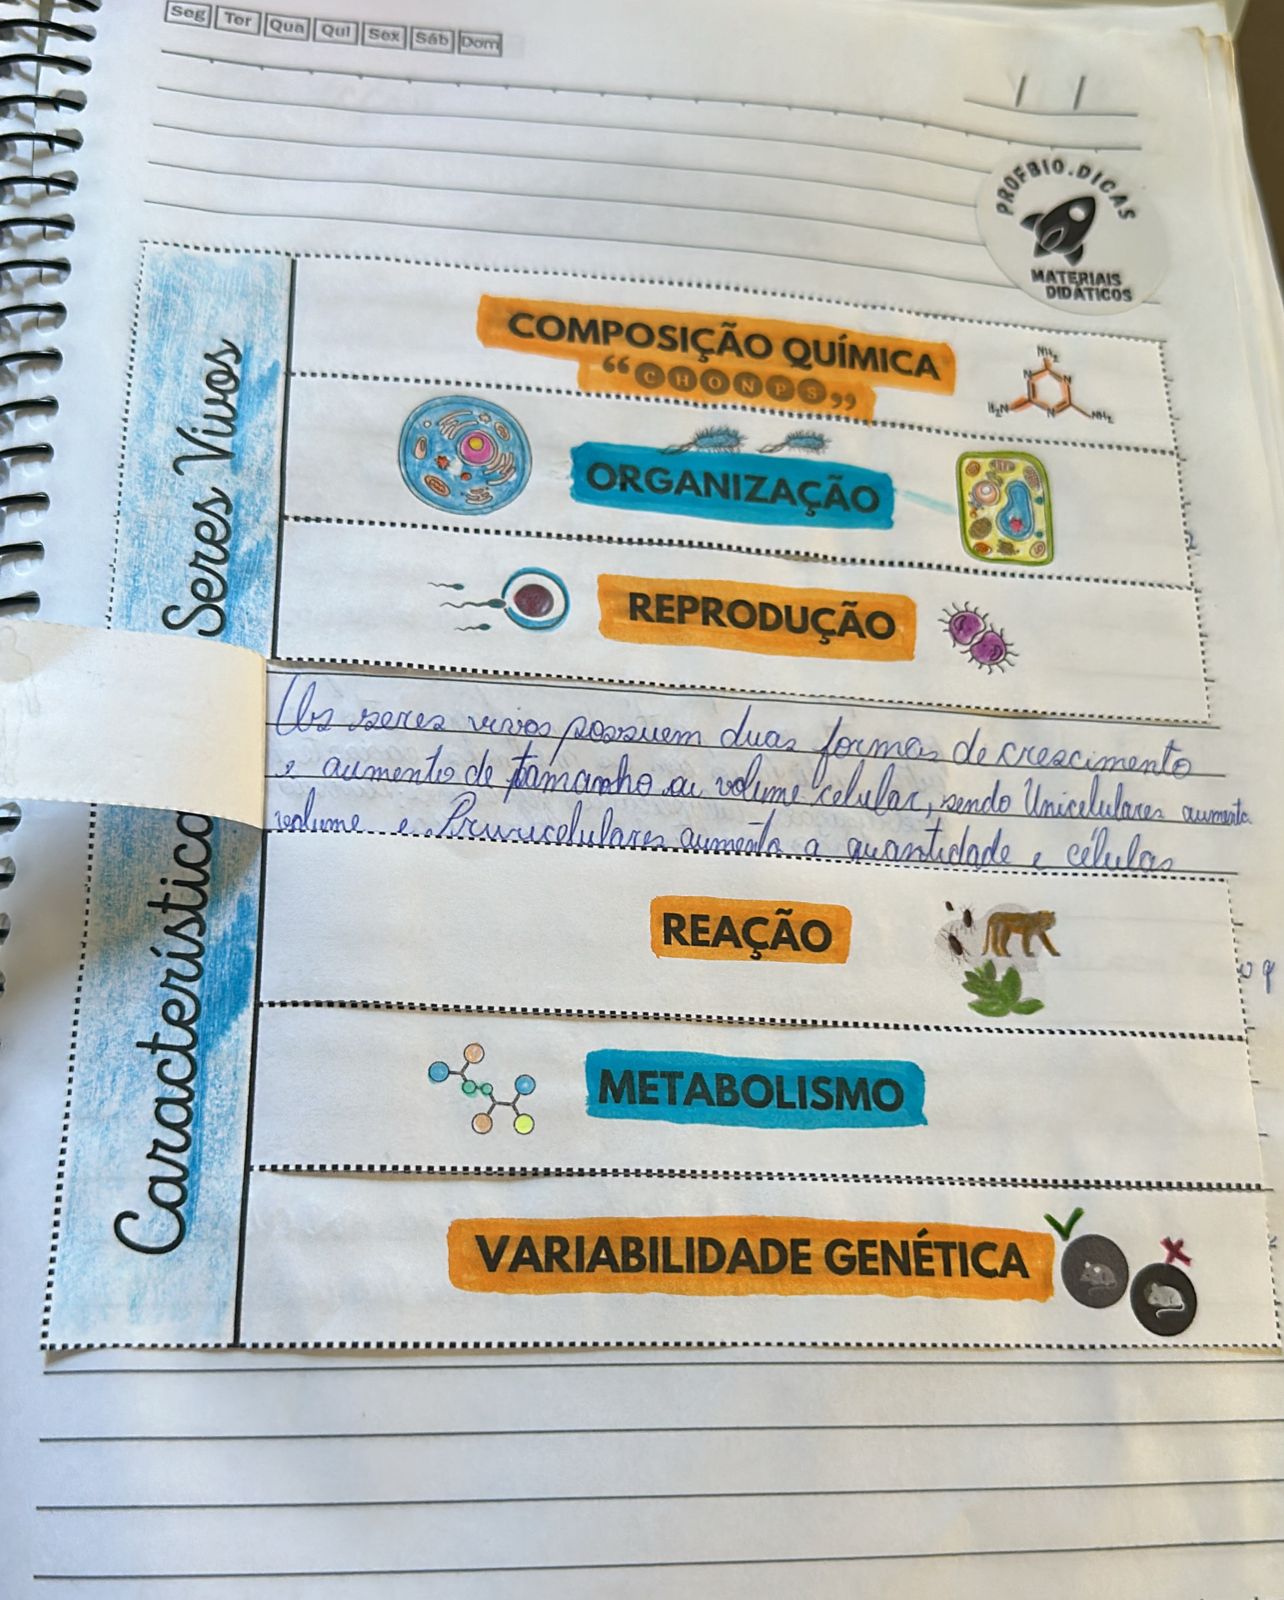 Seg Ter Qua Qui Sex Sáb Dom
/ /
PROFBIO.DICAS
MATERIAIS
DIDÁTICOS
Características Seres Vivos
COMPOSIÇÃO QUÍMICA
“CHONPS”
NH₂
N N
H₂N N NH₂
ORGANIZAÇÃO
REPRODUÇÃO
Os seres vivos possuem duas formas de crescimento
e aumento de tamanho ou volume celular, sendo Unicelulares aumenta
volume e Pruricelulares aumenta a quantidade e células
REAÇÃO
METABOLISMO
VARIABILIDADE GENÉTICA